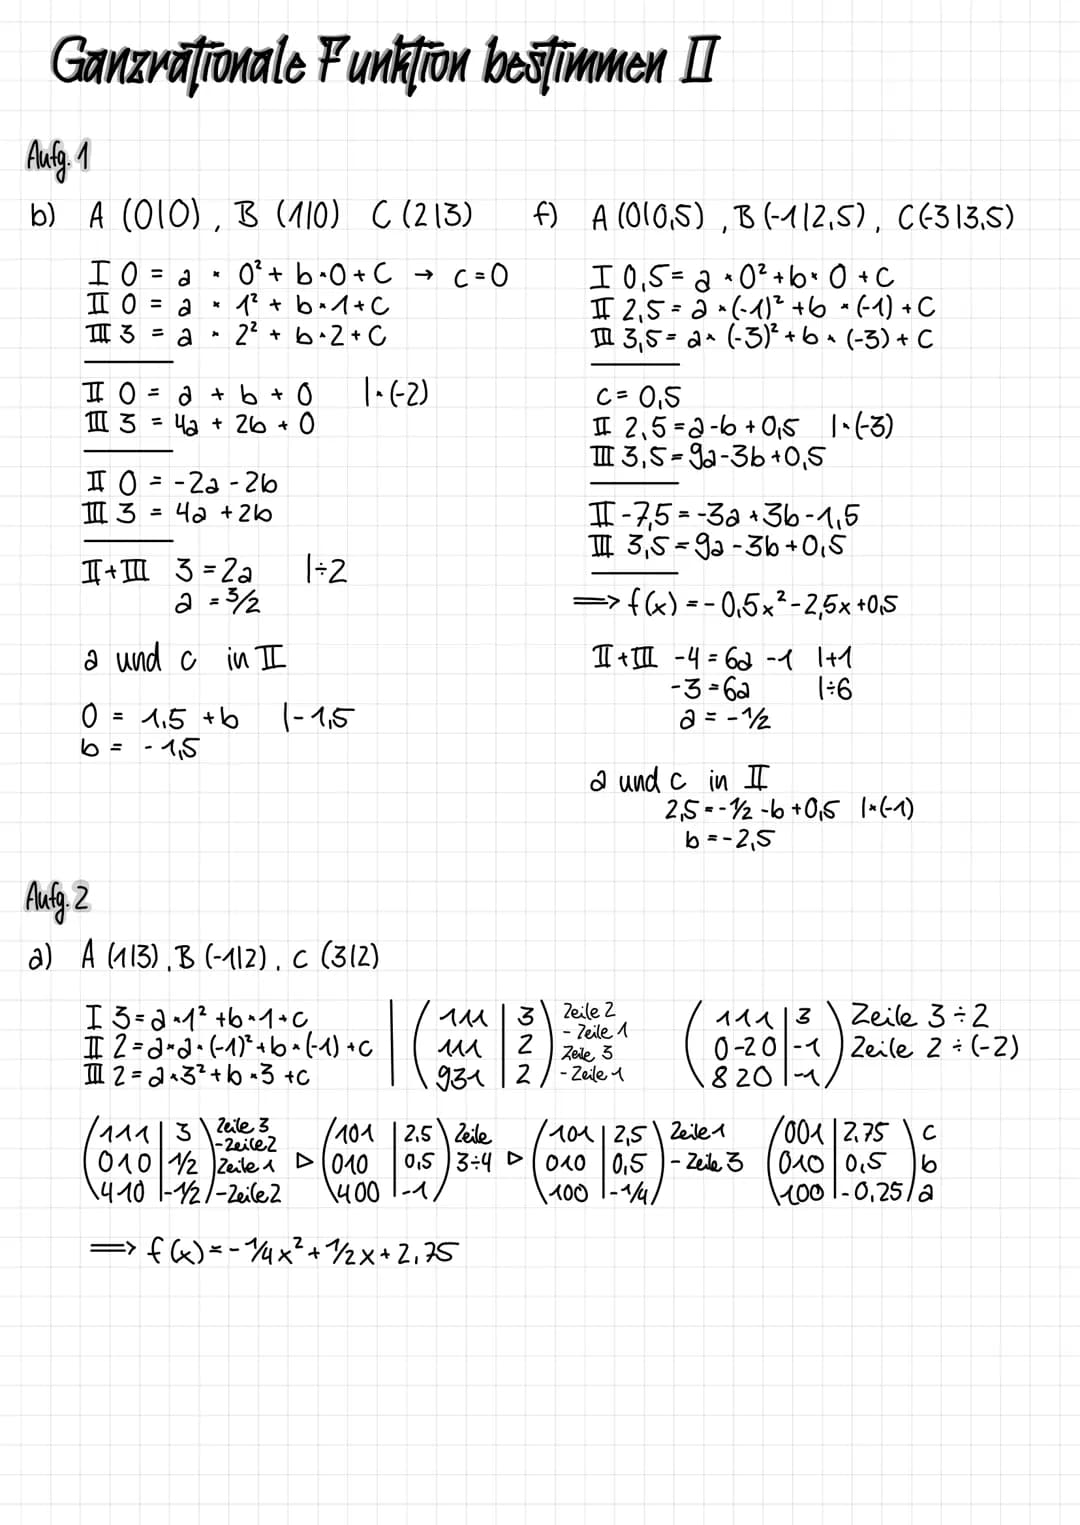 Ganzrationale Funktion bestimmen II
Aufg. 1
b) A (0|0), B (1|0) C (2|3)
I 0 = a · 0² + b·0 + C → c = 0
II 0 = a · 1² + b·1 + C
III 3 = a · 2² + b·2 + C
II 0 = a + b + 0 |·(-2)
III 3 = 4a + 2b + 0
II 0 = -2a - 2b
III 3 = 4a + 2b
II+III 3 = 2a |÷2
a = 3/2
a und c in II
0 = 1,5 + b |-1,5
b = -1,5
f) A (0|0,5), B (-1|2,5), C(-3|3,5)
I 0,5 = a · 0² + b · 0 + C
II 2,5 = a · (-1)² + b · (-1) + C
III 3,5 = a · (-3)² + b · (-3) + C
c = 0,5
II 2,5 = a - b + 0,5 |·(-3)
III 3,5 = 9a - 3b + 0,5
II -7,5 = -3a + 3b - 1,5
III 3,5 = 9a - 3b + 0,5
⟹ f(x) = -0,5x² - 2,5x + 0,5
II+III -4 = 6a - 1 |+1
-3 = 6a |÷6
a = -1/2
a und c in II
2,5 = -1/2 - b + 0,5 |·(-1)
b = -2,5
Aufg. 2
a) A (1|3), B (-1|2), C (3|2)
I 3 = a · 1² + b · 1 + C
II 2 = a · a · (-1)² + b · (-1) + C
III 2 = a · 3² + b · 3 + C
(1 1 1 | 3) Zeile 2
- Zeile 1
(1 1 1 | 2) Zeile 3
(9 3 1 | 2) - Zeile 1
(1 1 1 | 3) Zeile 3 ÷ 2
(0 -2 0 | -1) Zeile 2 ÷ (-2)
(8 2 0 | -1)
(1 1 1 | 3) Zeile 3
-Zeile 2
(0 1 0 | 1/2) Zeile 1
(4 1 0 | -1/2) -Zeile 2
▷ (1 0 1 | 2,5) Zeile
(0 1 0 | 0,5) 3÷4
(4 0 0 | -1)
▷ (1 0 1 | 2,5) Zeile 1
(0 1 0 | 0,5) - Zeile 3
(1 0 0 | -1/4)
(0 0 1 | 2,75) c
(0 1 0 | 0,5) b
(1 0 0 | -0,25) a
⟹ f(x) = -1/4x² + 1/2x + 2,75